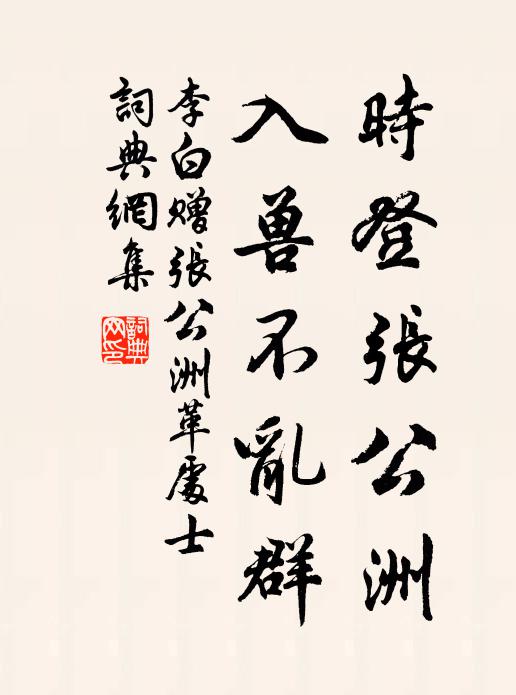 時登張公洲
入兽不亂群
李白赠張公洲革處士
詞典網集
詞典
网印